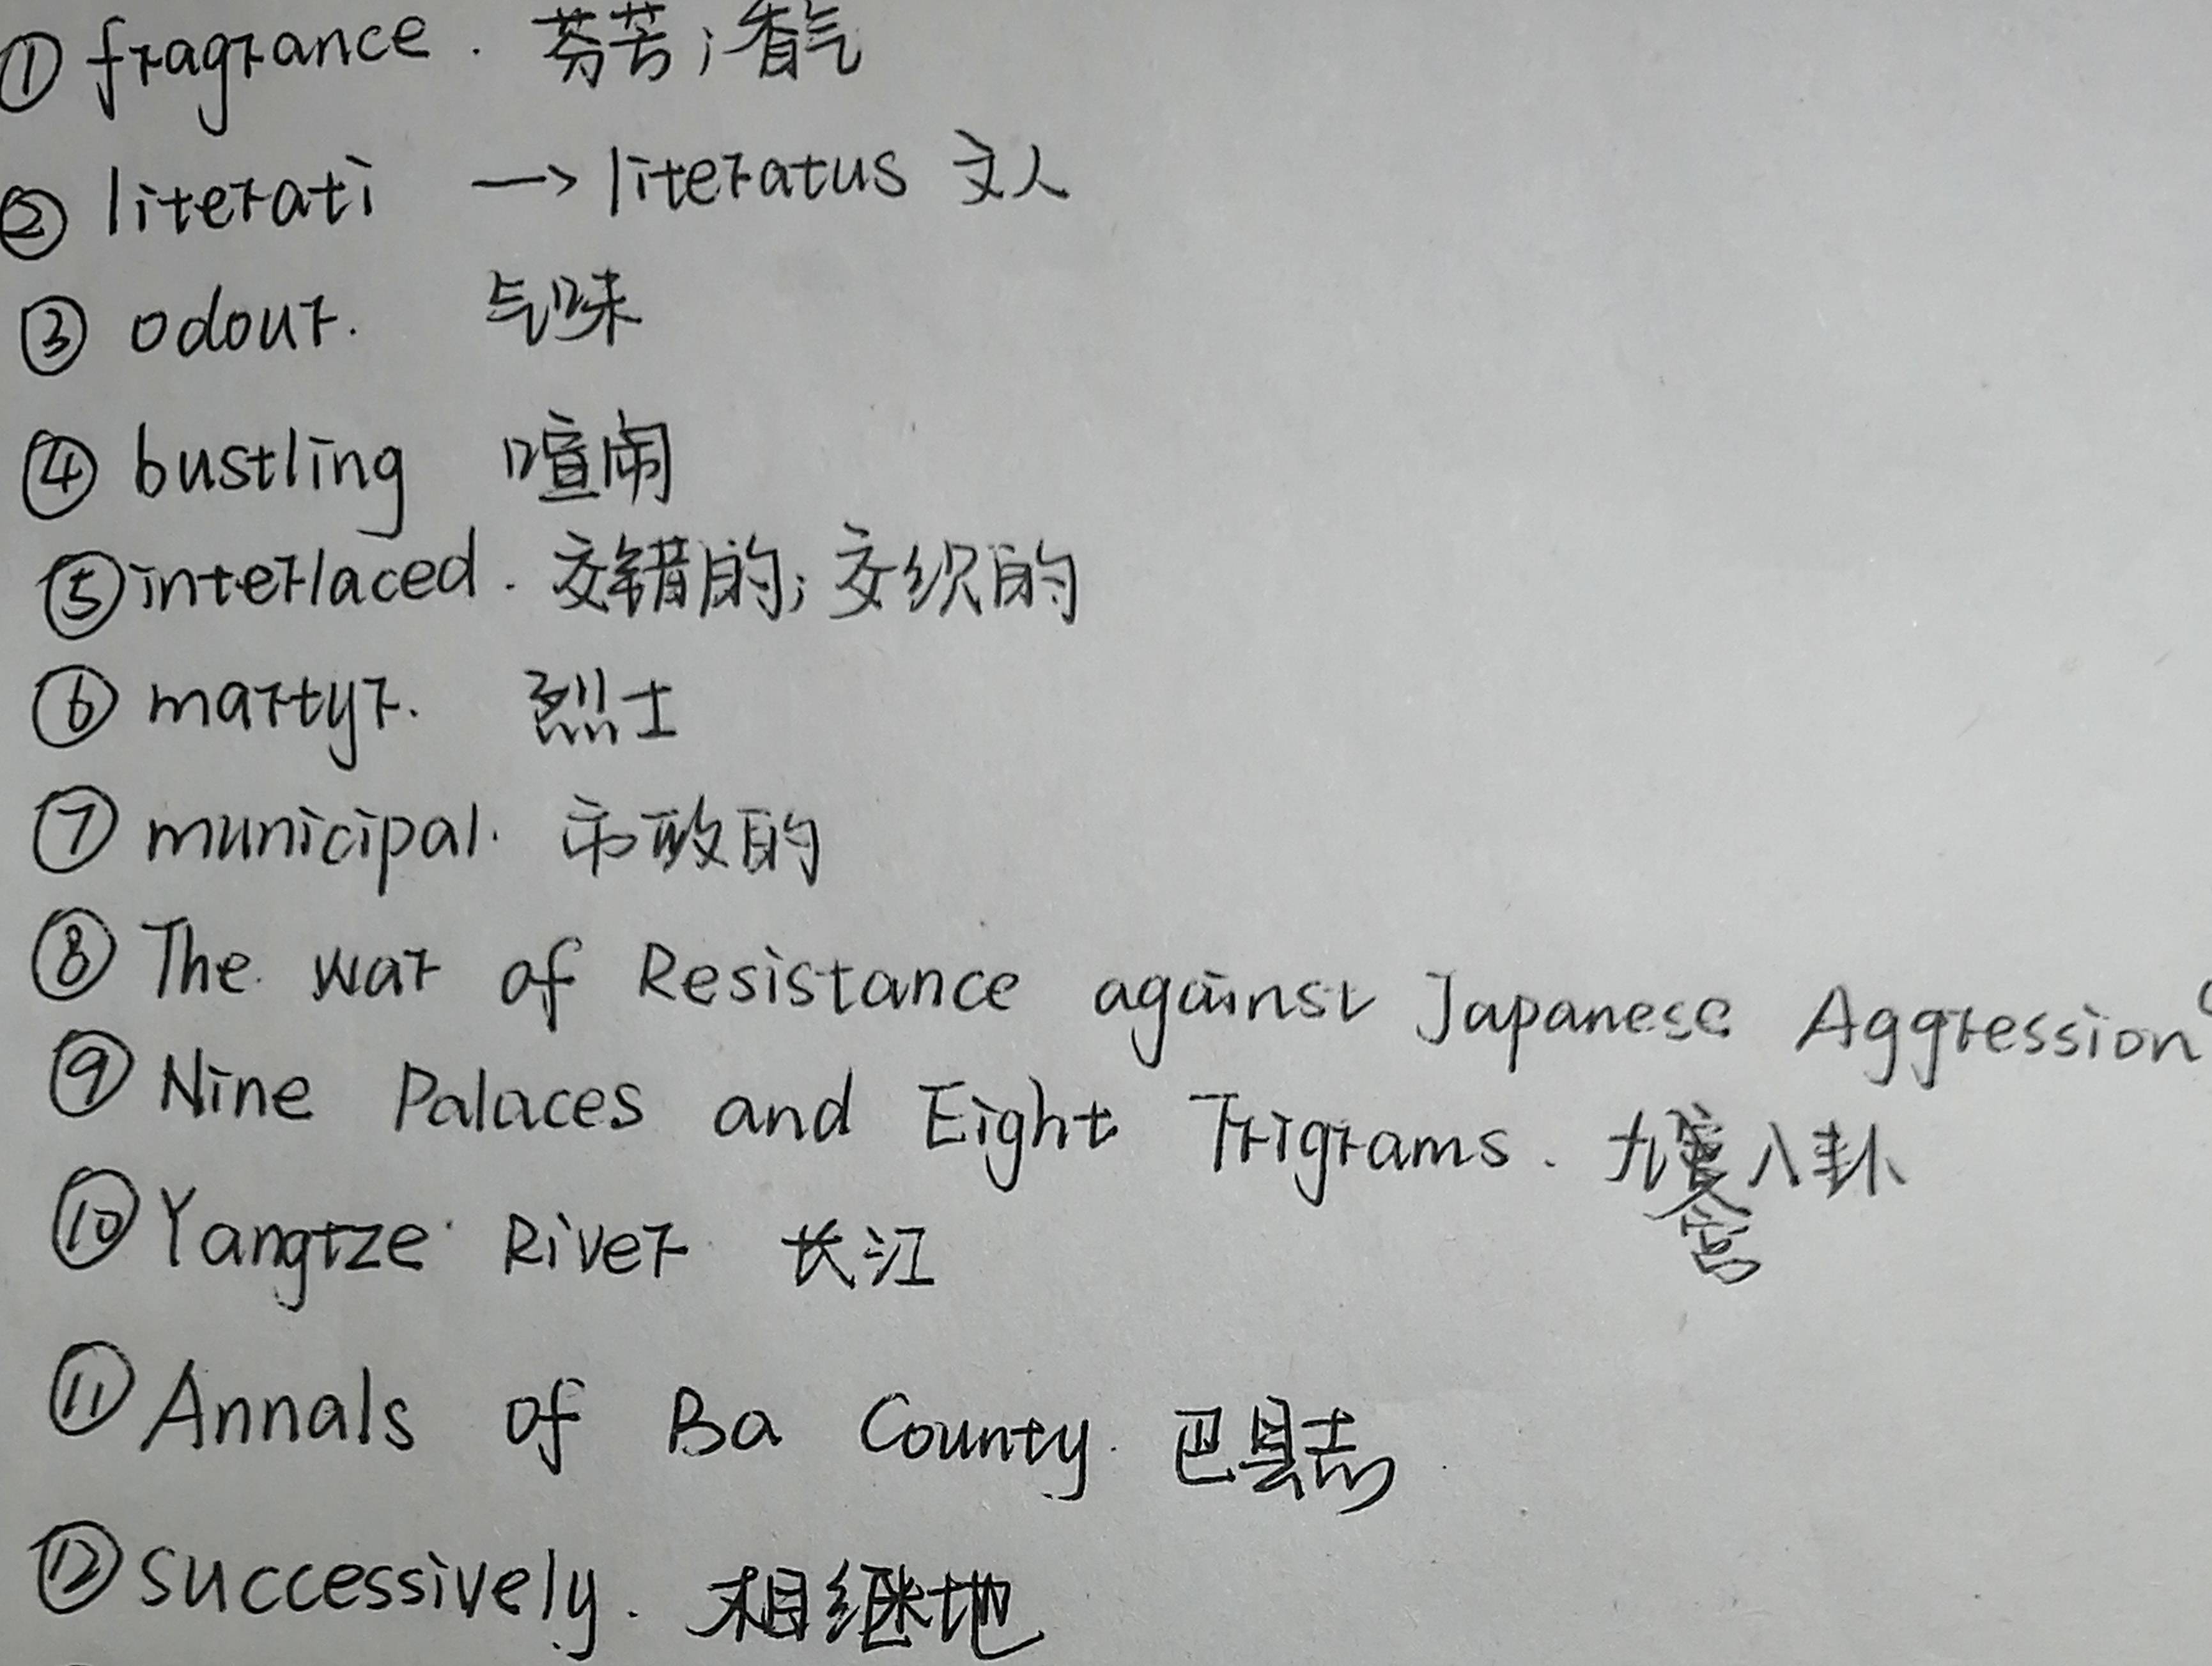 ① fragrance. 芬芳；香气
② literati → literatus 文人
③ odour. 气味
④ bustling 喧闹
⑤ interlaced. 交错的；交织的
⑥ martyr. 烈士
⑦ municipal. 市政的
⑧ The war of Resistance against Japanese Aggression
⑨ Nine Palaces and Eight Trigrams. 九宫八卦
⑩ Yangtze River 长江
⑪ Annals of Ba County. 巴县志
⑫ successively. 相继地